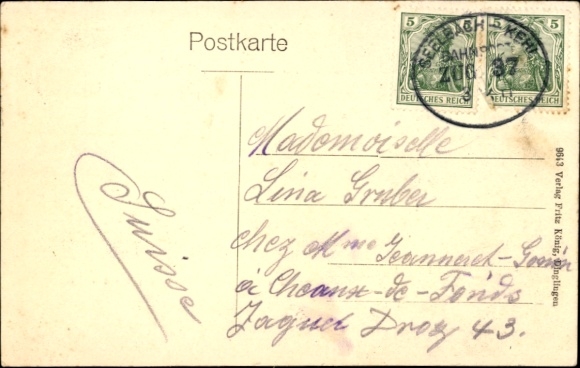 Postkarte
5
5
DEUTSCHES REICH
DEUTSCHES REICH
SEELBACH - KEHL
BAHNPOST
ZUG 37
Mademoiselle
Lina Gruber
chez Mme Jeanneret-
à Cheaux-de-Fonds
Jaquet Droz 43.
Suisse
9643 Verlag Fritz König, Dinglingen